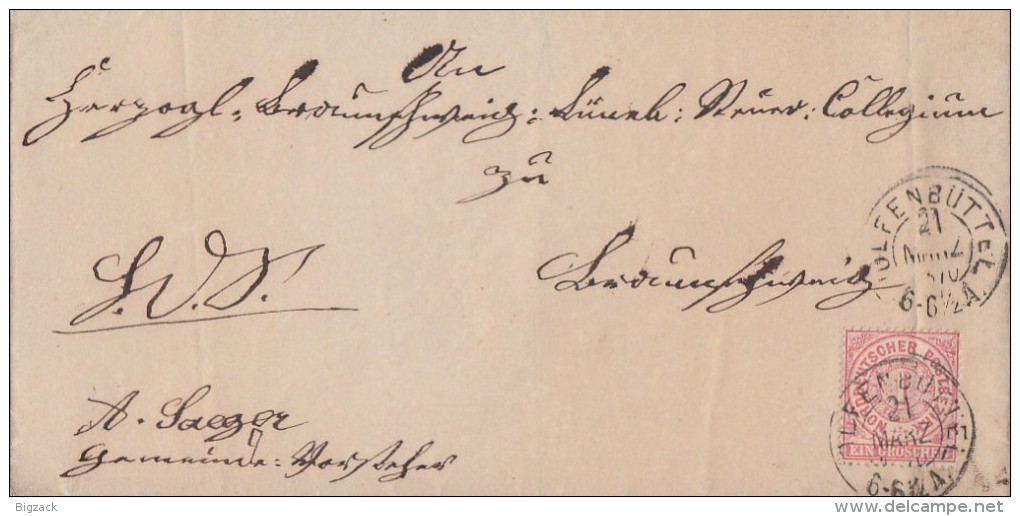 An
Herzogl. Braunschweig: Lüneb: Steuer: Collegium
zu
H.D.S.
Braunschweig
A. Saeger
Gemeinde-Vorsteher
WOLFENBÜTTEL
21
MÄRZ
6-6½ A.
NORDDEUTSCHER POSTBEZIRK
EIN GROSCHEN
WOLFENBÜTTEL
21
MÄRZ
6-6½ A.
Bigzack
delcampe.net